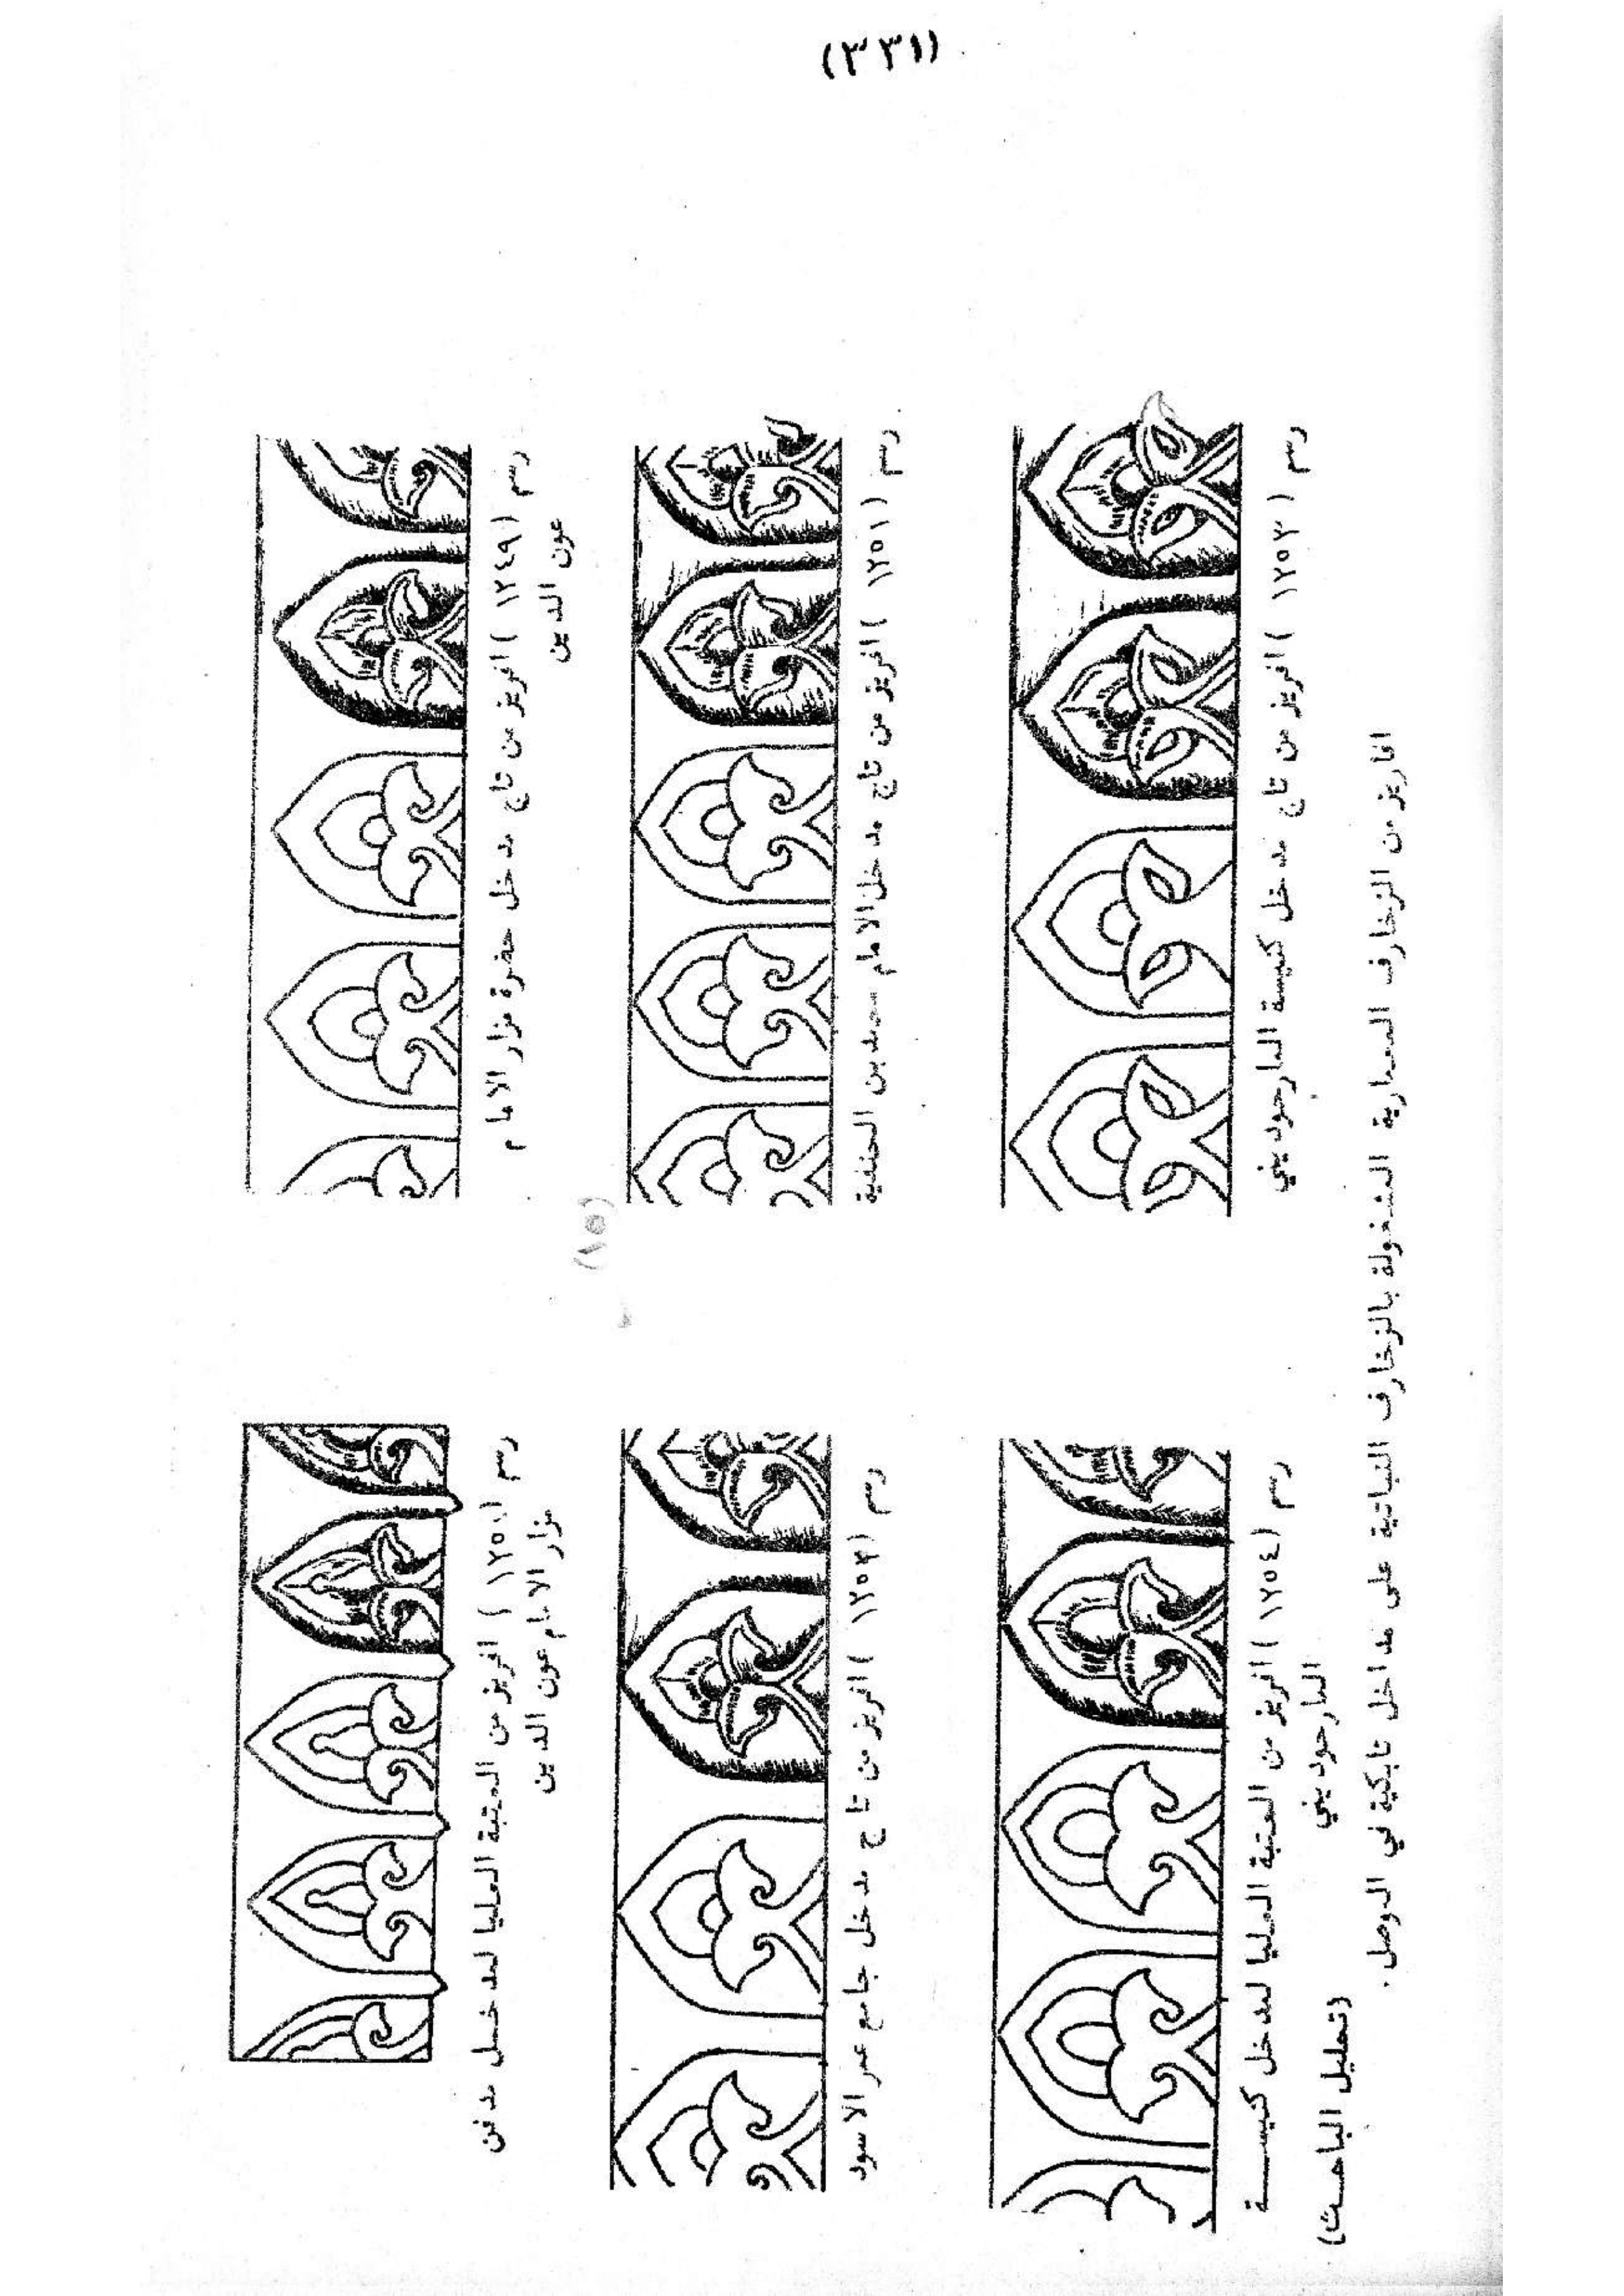 (٣٣١)
رسم (١٢٤٩) افريز من تاج مدخل حضرة مزار الامام
عون الدين
رسم (١٢٥٠) افريز من العتبة العليا لمدخل مدفن
مزار الامام عون الدين
(١٥)
رسم (١٢٥١) افريز من تاج مدخل الامام محمد بن الحنفية
رسم (١٢٥٢) افريز من تاج مدخل جامع عمر الاسود
رسم (١٢٥٣) افريز من تاج مدخل كنيسة المارحوديني
رسم (١٢٥٤) افريز من العتبة العليا لمدخل كنيسة
المارحوديني
افاريز من الزخارف المعمارية المشغولة بالزخارف النباتية على مداخل تابكية في الموصل.
(تحليل الباحث)